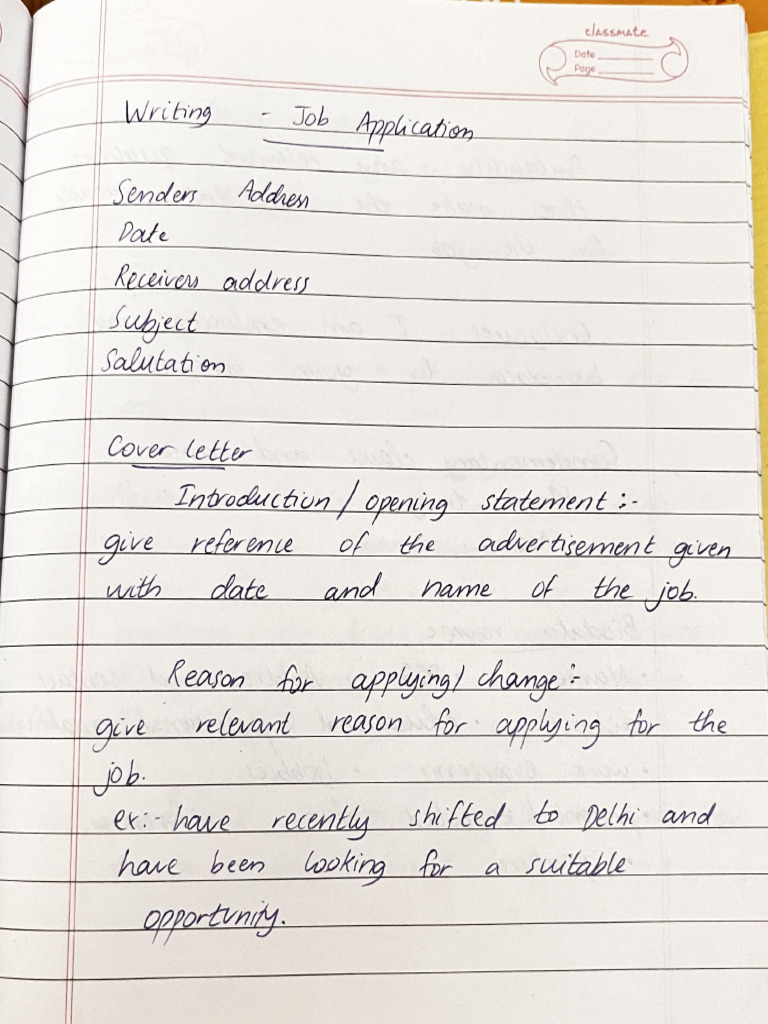 classmate
Date
Page
Writing - Job Application
Senders Address
Date
Receivers address
Subject
Salutation
Cover letter
Introduction / opening statement :-
give reference of the advertisement given
with date and name of the job.
Reason for applying / change :-
give relevant reason for applying for the
job.
ex:- have recently shifted to Delhi and
have been looking for a suitable
opportunity.